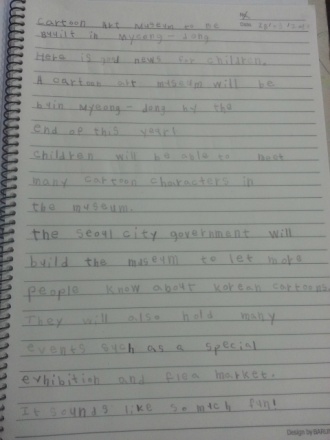 Cartoon Art Museum to be
built in Myeong-dong
Here is good news for children.
A cartoon art museum will be
b in Myeong-dong by the
end of this year!
Children will be able to meet
many cartoon characters in
the museum.
The Seoul city government will
build the museum to let more
people know about Korean cartoons.
They will also hold many
events such as a special
exhibition and flea market.
It sounds like so much fun!
Design by